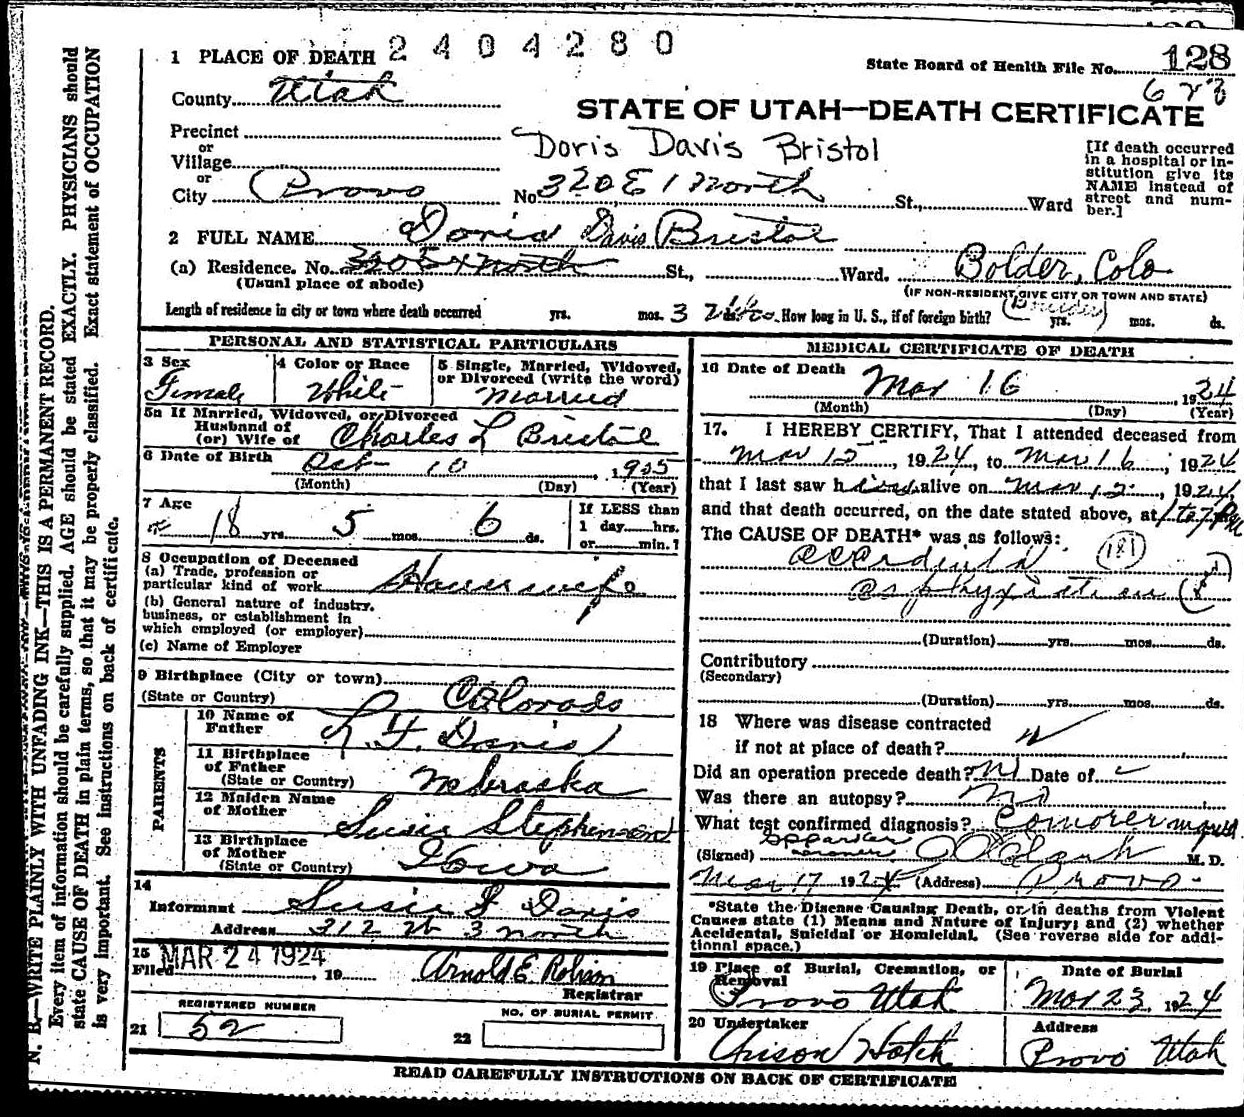 2404280
128
1 PLACE OF DEATH
State Board of Health File No.
County Utah
STATE OF UTAH—DEATH CERTIFICATE
Precinct
or
Village
or
City Provo
Doris Davis Bristol
No 320 E 1 North St., Ward
[If death occurred
in a hospital or in-
stitution give its
NAME instead of
street and num-
ber.]
2 FULL NAME Doris Davis Bristol
(a) Residence. No. North St., Ward. Bolder, Colo
(Usual place of abode)
(IF NON-RESIDENT, GIVE CITY OR TOWN AND STATE)
(Boulder)
Length of residence in city or town where death occurred yrs. mos. 3 ds. How long in U. S., if of foreign birth? yrs. mos. ds.
PERSONAL AND STATISTICAL PARTICULARS
3 Sex
Female
4 Color or Race
White
5 Single, Married, Widowed,
or Divorced (write the word)
Married
5a If Married, Widowed, or Divorced
Husband of
(or) Wife of Charles L Bristol
6 Date of Birth Oct 10, 1905
(Month) (Day) (Year)
7 Age
18 yrs. 5 mos. 6 ds.
If LESS than
1 day hrs.
or min. ?
8 Occupation of Deceased
(a) Trade, profession or
particular kind of work Housewife
(b) General nature of industry,
business, or establishment in
which employed (or employer)
(c) Name of Employer
9 Birthplace (City or town)
(State or Country) Colorado
PARENTS
10 Name of
Father L. F. Davis
11 Birthplace
of Father
(State or Country) Nebraska
12 Maiden Name
of Mother Susie Stephenson
13 Birthplace
of Mother
(State or Country) Iowa
14
Informant Susie F Davis
Address 312 W 3 North
15
Filed MAR 24 1924, 19
Arnold E Robison
Registrar
REGISTERED NUMBER
21 52
NO. OF BURIAL PERMIT
22
MEDICAL CERTIFICATE OF DEATH
16 Date of Death Mar 16, 1924
(Month) (Day) (Year)
17. I HEREBY CERTIFY, That I attended deceased from
Mar 15, 1924, to Mar 16, 1924
that I last saw h alive on Mar 15, 1924,
and that death occurred, on the date stated above, at
The CAUSE OF DEATH* was as follows:
accidental
asphyxiation
(Duration) yrs. mos. ds.
Contributory
(Secondary)
(Duration) yrs. mos. ds.
18 Where was disease contracted
if not at place of death?
Did an operation precede death? Date of
Was there an autopsy? No
What test confirmed diagnosis?
(Signed) M. D.
Mar 17 1924 (Address) Provo
*State the Disease Causing Death, or in deaths from Violent
Causes state (1) Means and Nature of Injury; and (2) whether
Accidental, Suicidal or Homicidal. (See reverse side for addi-
tional space.)
19 Place of Burial, Cremation, or
Removal
Provo Utah
Date of Burial
Mar 23, 1924
20 Undertaker
Hatch
Address
Provo Utah
READ CAREFULLY INSTRUCTIONS ON BACK OF CERTIFICATE
N. B.—WRITE PLAINLY WITH UNFADING INK—THIS IS A PERMANENT RECORD.
Every item of information should be carefully supplied. AGE should be stated EXACTLY. PHYSICIANS should
state CAUSE OF DEATH in plain terms, so that it may be properly classified. Exact statement of OCCUPATION
is very important. See instructions on back of certificate.